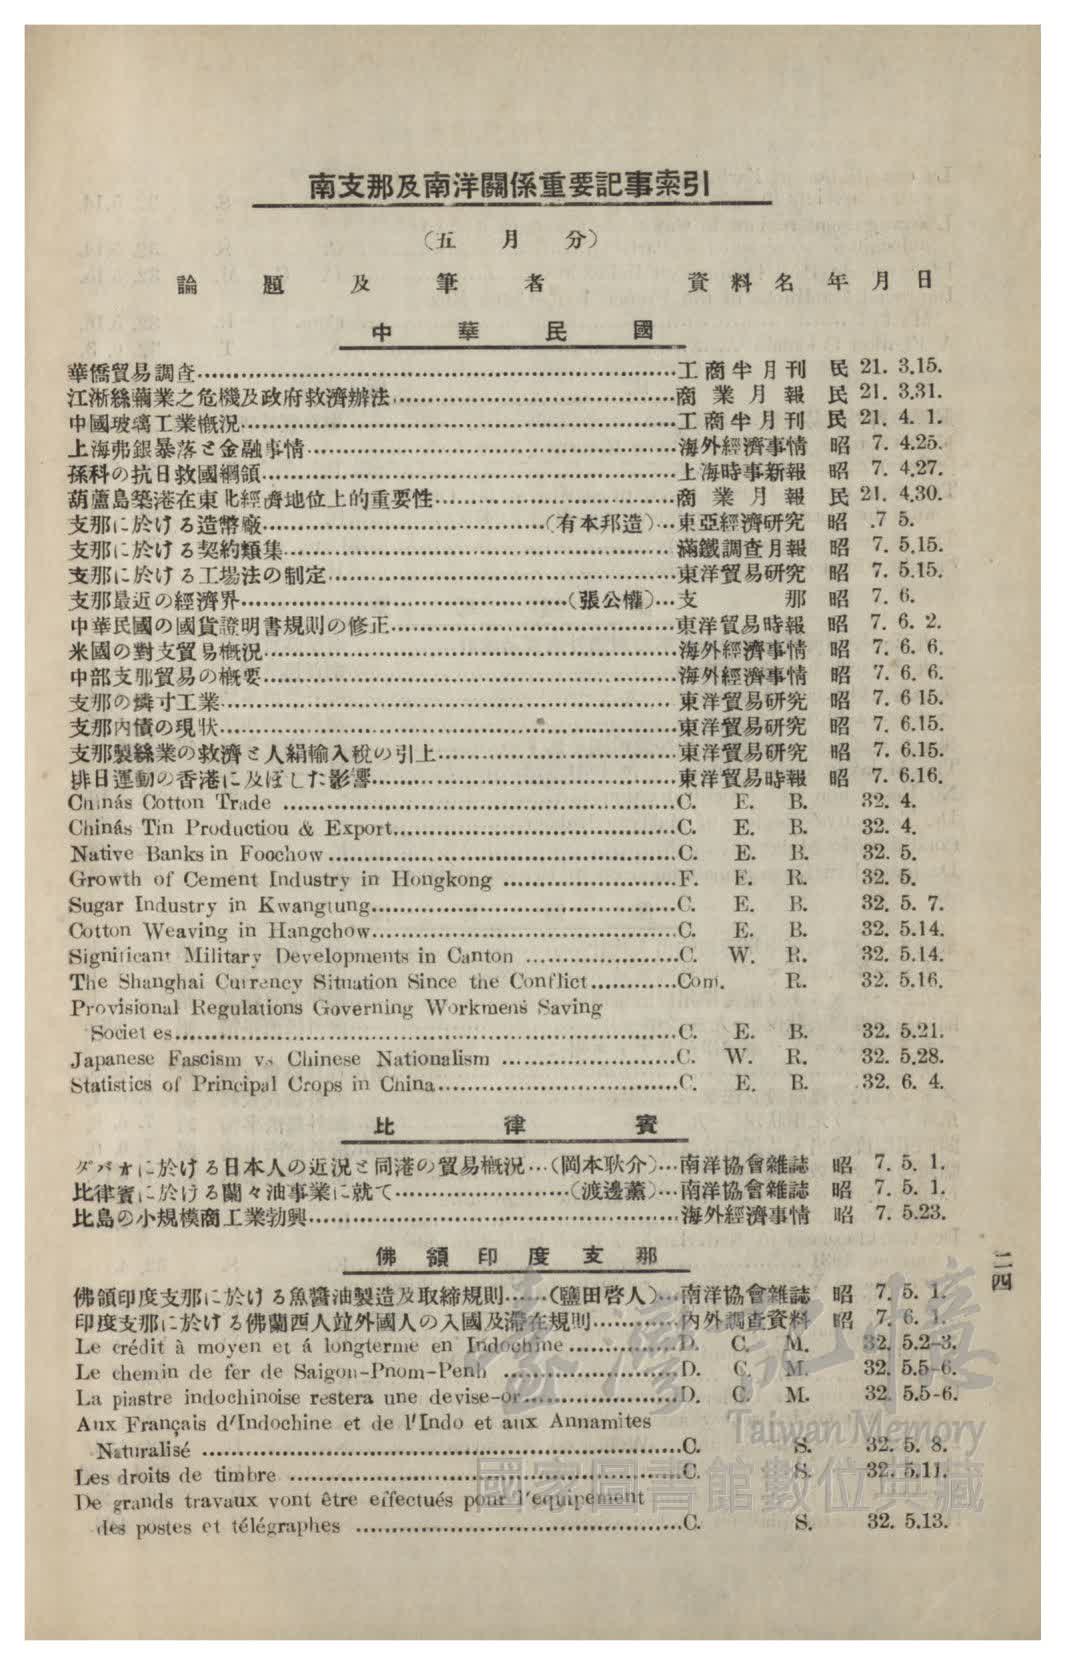 南支那及南洋關係重要記事索引
（五月分）
論題及筆者 資料名 年月日
中華民國
華僑貿易調査…………工商半月刊 民 21. 3.15.
江淅絲繭業之危機及政府救濟辦法…………商業月報 民 21. 3.31.
中國玻璃工業概況…………工商半月刊 民 21. 4. 1.
上海弗銀暴落と金融事情…………海外經濟事情 昭 7. 4.25.
孫科の抗日救國綱領…………上海時事新報 昭 7. 4.27.
葫蘆島築港在東北經濟地位上的重要性…………商業月報 民 21. 4.30.
支那に於ける造幣廠…………（有本邦造）…東亞經濟研究 昭 .7 5.
支那に於ける契約類集…………滿鐵調査月報 昭 7. 5.15.
支那に於ける工場法の制定…………東洋貿易研究 昭 7. 5.15.
支那最近の經濟界…………（張公權）…支那 昭 7. 6.
中華民國の國貨證明書規則の修正…………東洋貿易時報 昭 7. 6. 2.
米國の對支貿易概況…………海外經濟事情 昭 7. 6. 6.
中部支那貿易の概要…………海外經濟事情 昭 7. 6. 6.
支那の燐寸工業…………東洋貿易研究 昭 7. 6 15.
支那内債の現狀…………東洋貿易研究 昭 7. 6.15.
支那製絲業の救濟と人絹輸入稅の引上…………東洋貿易研究 昭 7. 6.15.
排日運動の香港に及ぼした影響…………東洋貿易時報 昭 7. 6.16.
Chinás Cotton Trade …………C. E. B. 32. 4.
Chinás Tin Productiou & Export…………C. E. B. 32. 4.
Native Banks in Foochow…………C. E. B. 32. 5.
Growth of Cement Industry in Hongkong …………F. E. R. 32. 5.
Sugar Industry in Kwangtung…………C. E. B. 32. 5. 7.
Cotton Weaving in Hangchow…………C. E. B. 32. 5.14.
Significant Military Developments in Canton …………C. W. R. 32. 5.14.
The Shanghai Currency Situation Since the Conflict…………Com. R. 32. 5.16.
Provisional Regulations Governing Workmens Saving
Societ es…………C. E. B. 32. 5.21.
Japanese Fascism vs Chinese Nationalism …………C. W. R. 32. 5.28.
Statistics of Principal Crops in China…………C. E. B. 32. 6. 4.
比律賓
ダバオに於ける日本人の近況と同港の貿易概況…（岡本耿介）…南洋協會雜誌 昭 7. 5. 1.
比律賓に於ける蘭々油事業に就て…………（渡邊薫）…南洋協會雜誌 昭 7. 5. 1.
比島の小規模商工業勃興…………海外經濟事情 昭 7. 5.23.
佛領印度支那
佛領印度支那に於ける魚醬油製造及取締規則……（鹽田啓人）…南洋協會雜誌 昭 7. 5. 1.
印度支那に於ける佛蘭西人竝外國人の入國及滯在規則…………内外調査資料 昭 7. 6. 1.
Le crédit à moyen et á longterme en Indochine…………D. C. M. 32. 5.2-3.
Le chemin de fer de Saigon-Pnom-Penh …………D. C. M. 32. 5.5-6.
La piastre indochinoise restera une devise-or…………D. C. M. 32. 5.5-6.
Aux Français d'Indochine et de l'Indo et aux Annamites
Naturalisé …………C. S. 32. 5. 8.
Les droits de timbre …………C. S. 32. 5.11.
De grands travaux vont être effectués pour l'equipement
des postes et télégraphes …………C. S. 32. 5.13.
二四
臺灣記憶
Taiwan Memory
國家圖書館數位典藏